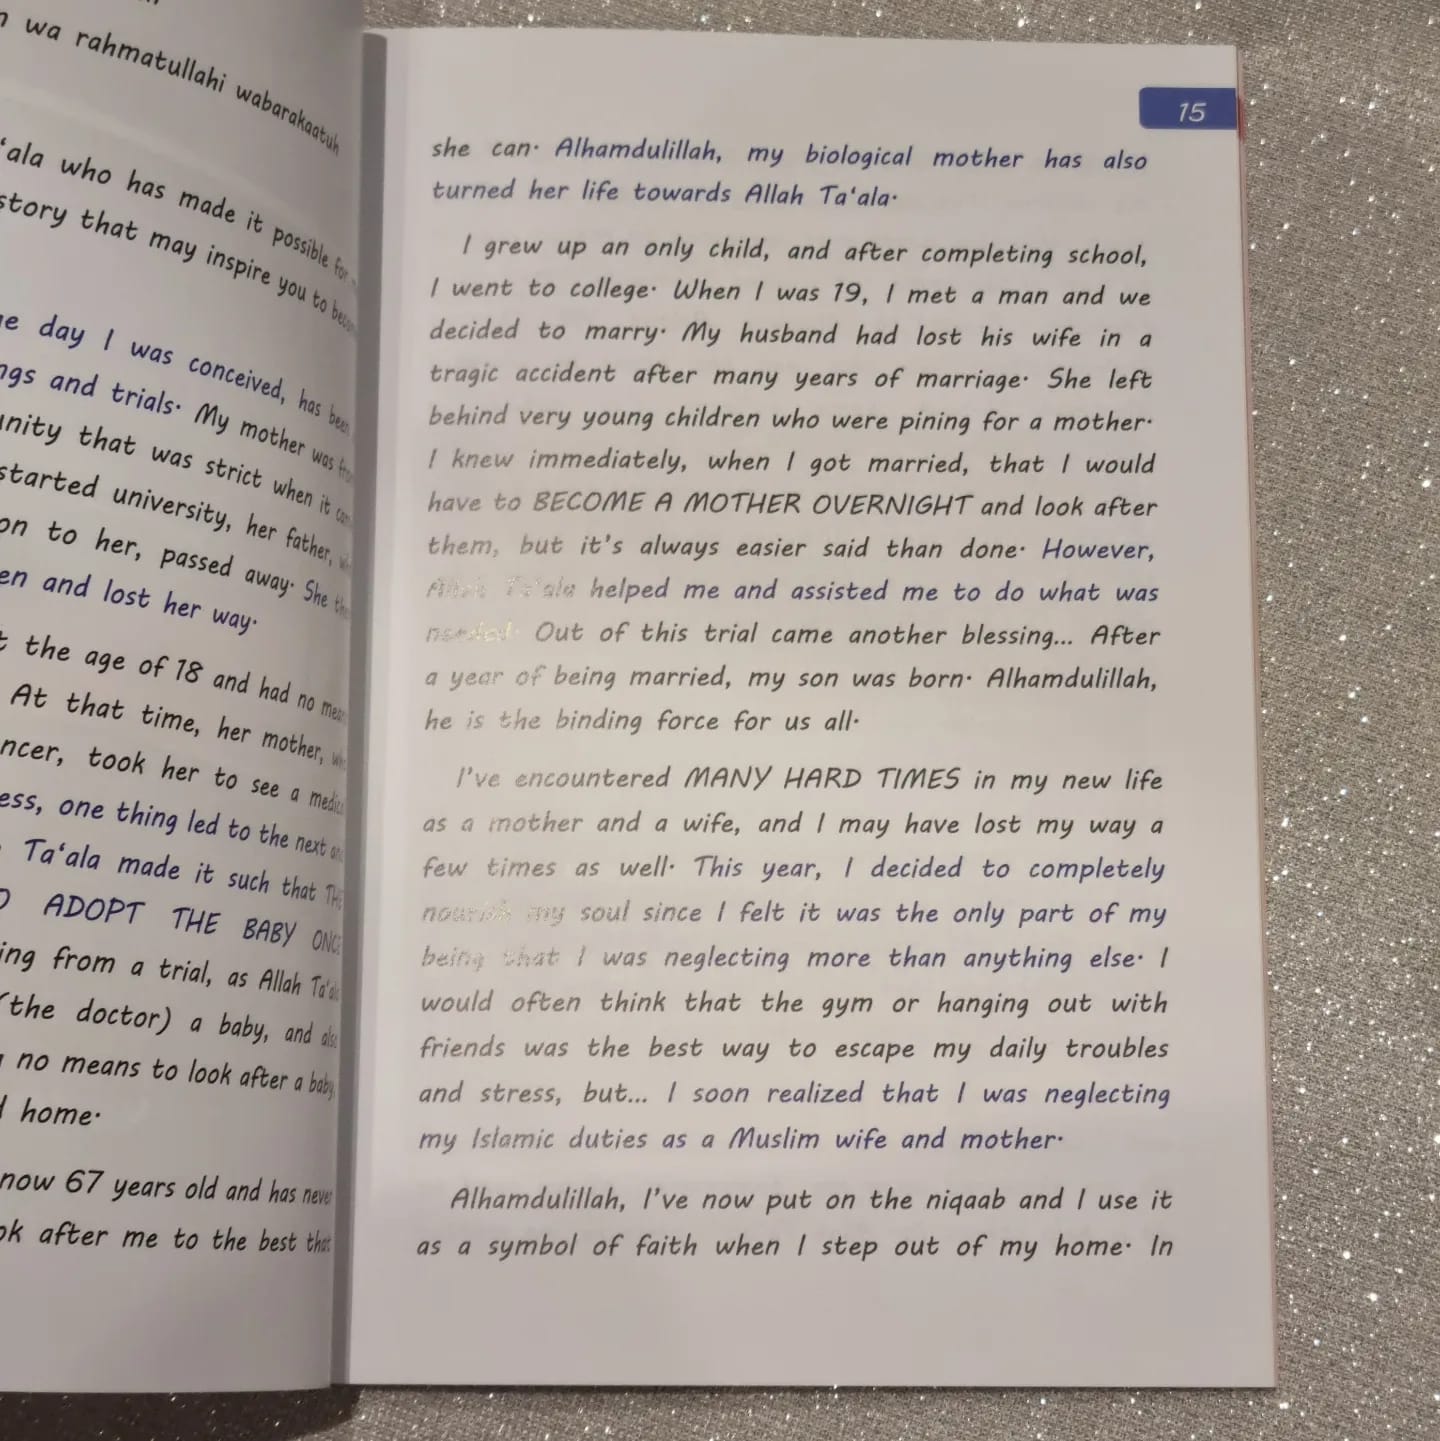 wa rahmatullahi wabarakaatuh
‘ala who has made it possible for
story that may inspire you to
day I was conceived, has been
and trials· My mother was
that was strict when it
started university, her father,
to her, passed away· She
and lost her way·
the age of 18 and had no
At that time, her mother,
took her to see a
one thing led to the next
Ta‘ala made it such that
ADOPT THE BABY
from a trial, as Allah Ta‘ala
(the doctor) a baby, and also
no means to look after a baby
home·
now 67 years old and has never
after me to the best that
15
she can· Alhamdulillah, my biological mother has also
turned her life towards Allah Ta‘ala·
I grew up an only child, and after completing school,
I went to college· When I was 19, I met a man and we
decided to marry· My husband had lost his wife in a
tragic accident after many years of marriage· She left
behind very young children who were pining for a mother·
I knew immediately, when I got married, that I would
have to BECOME A MOTHER OVERNIGHT and look after
them, but it’s always easier said than done· However,
Allah Ta‘ala helped me and assisted me to do what was
needed· Out of this trial came another blessing... After
a year of being married, my son was born· Alhamdulillah,
he is the binding force for us all·
I’ve encountered MANY HARD TIMES in my new life
as a mother and a wife, and I may have lost my way a
few times as well· This year, I decided to completely
nourish my soul since I felt it was the only part of my
being that I was neglecting more than anything else· I
would often think that the gym or hanging out with
friends was the best way to escape my daily troubles
and stress, but... I soon realized that I was neglecting
my Islamic duties as a Muslim wife and mother·
Alhamdulillah, I’ve now put on the niqaab and I use it
as a symbol of faith when I step out of my home· In